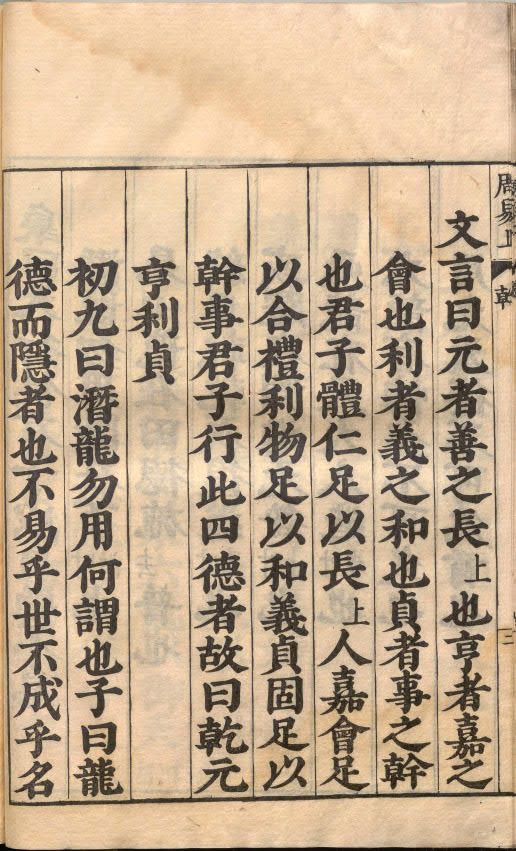 周易上 乾
文言曰元者善之長上也亨者嘉之
會也利者義之和也貞者事之幹
也君子體仁足以長上人嘉會足
以合禮利物足以和義貞固足以
幹事君子行此四德者故曰乾元
亨利貞
初九曰潛龍勿用何謂也子曰龍
德而隱者也不易乎世不成乎名